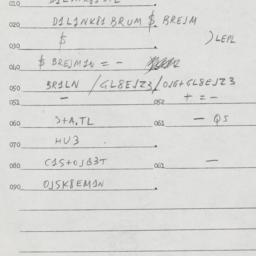 010
020 D1L1NK81 BRUM $ BREJM
030 $ )LEPL
040 $ BREJM1N = -
050 BR1LN / GL8EJZ3 / OJG+GL8EJZ3
051 - 052 + = -
060 J+A.TL 061 - QS
070 HU3
080 C1S+OJB3T 061 -
090 OJSK8EM1N